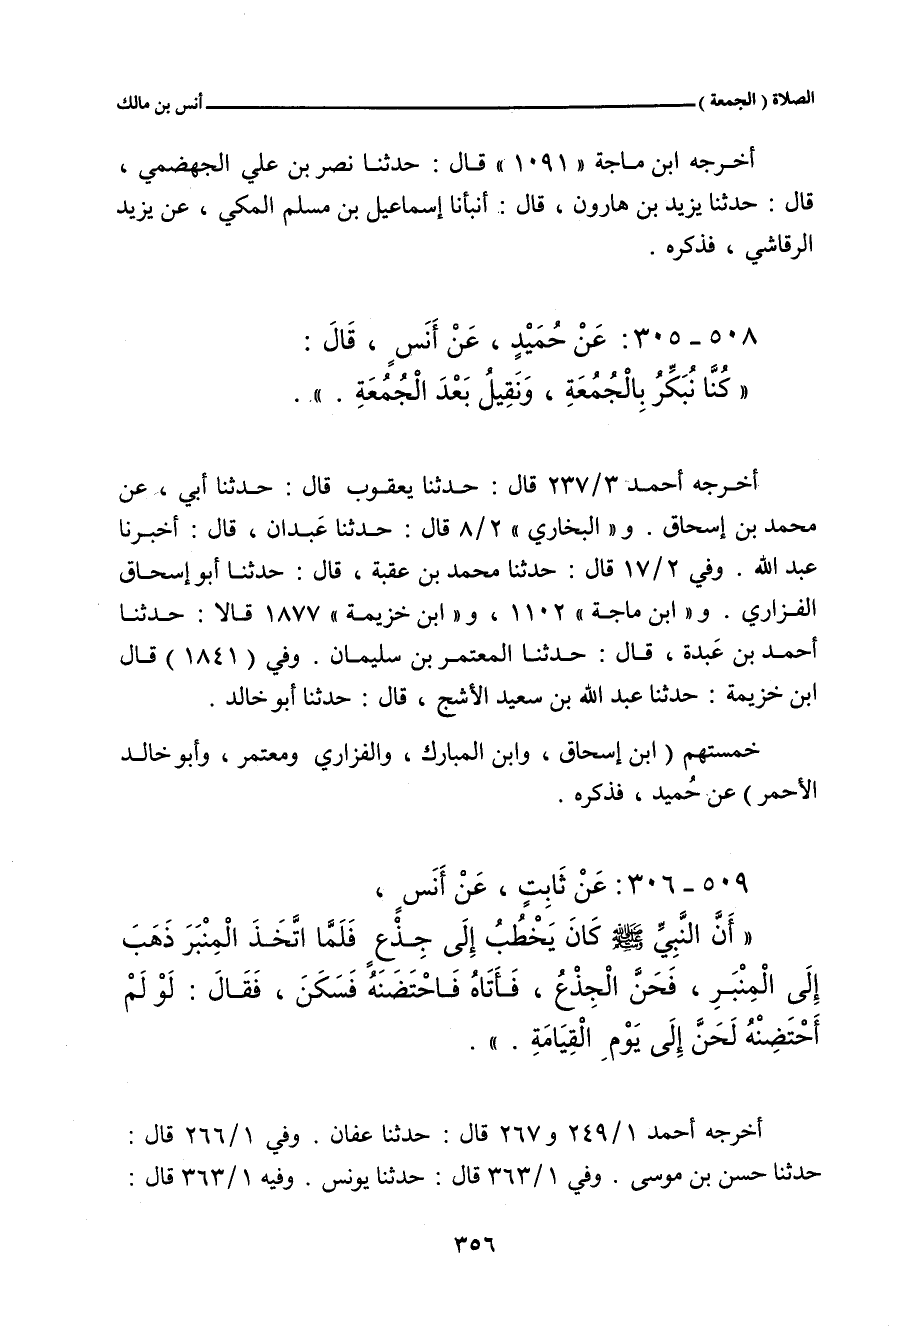 الصلاة ( الجمعة ) ــــــــــ أنس بن مالك
أخـرجه ابن مـاجة « ١٠٩١ » قـال : حدثنـا نصر بن علي الجهضمي ،
قال : حدثنا يزيد بن هارون ، قال : أنبأنا إسماعيل بن مسلم المكي ، عن يزيد
الرقاشي ، فذكره .
٥٠٨ ـ ٣٠٥: عَنْ حُمَيْدٍ ، عَنْ أَنَسٍ ، قَالَ :
« كُنَّا نُبَكِّرُ بِالْجُمُعَةِ ، وَنَقِيلُ بَعْدَ الْجُمُعَةِ . » .
أخـرجه أحمـد ٢٣٧/٣ قال : حـدثنا يعقـوب قال : حـدثنا أبي ، عن
محمد بن إسحاق . و « البخاري » ٨/٢ قال : حـدثنا عَبـدان ، قال : أخبـرنا
عبد الله . وفي ١٧/٢ قال : حدثنا محمد بن عقبة ، قال : حدثنـا أبو إسحـاق
الفـزاري . و « ابن ماجـة » ١١٠٢ ، و « ابن خزيمـة » ١٨٧٧ قـالا : حـدثنـا
أحمـد بن عَبدة ، قـال : حـدثنـا المعتمـر بن سليمـان . وفي ( ١٨٤١ ) قـال
ابن خزيمة : حدثنا عبد الله بن سعيد الأشج ، قال : حدثنا أبو خالد .
خمستهم ( ابن إسحاق ، وابن المبارك ، والفزاري ومعتمر ، وأبو خالـد
الأحمر ) عن حُميد ، فذكره .
٥٠٩ ـ ٣٠٦: عَنْ ثَابِتٍ ، عَنْ أَنَسٍ ،
« أَنَّ النَّبِيَّ ﷺ كَانَ يَخْطُبُ إِلَى جِـذْعٍ فَلَمَّا اتَّخَذَ الْمِنْبَرَ ذَهَبَ
إِلَى الْمِنْبَـرِ ، فَحَنَّ الْجِذْعُ ، فَـأَتَاهُ فَـاحْتَضَنَهُ فَسَكَنَ ، فَقَـالَ : لَوْ لَمْ
أَحْتَضِنْهُ لَحَنَّ إِلَى يَوْمِ الْقِيَامَةِ . » .
أخرجه أحمد ٢٤٩/١ و ٢٦٧ قال : حدثنا عفان . وفي ٢٦٦/١ قال :
حدثنا حسن بن موسى . وفي ٣٦٣/١ قال : حدثنا يونس . وفيه ٣٦٣/١ قال :
٣٥٦